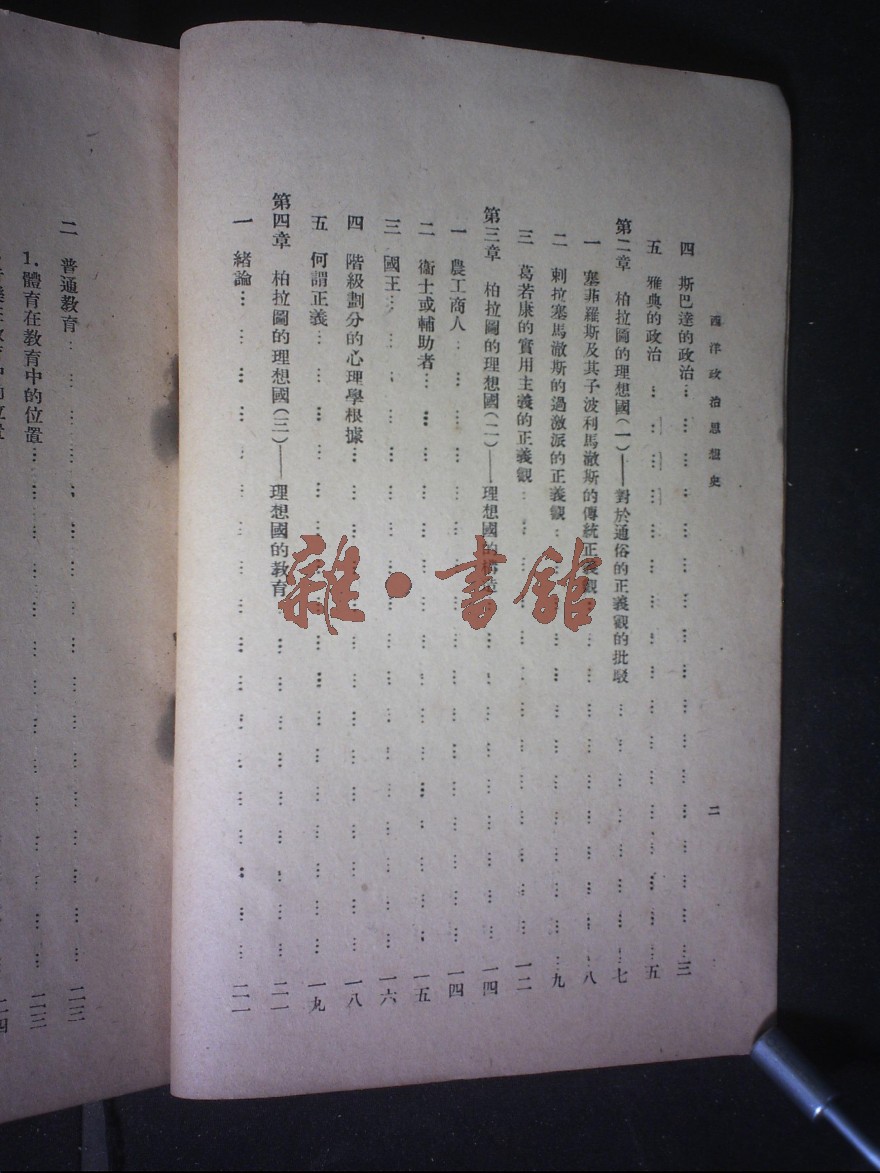 西洋政治思想史
二
四 斯巴達的政治……三
五 雅典的政治……五
第二章 柏拉圖的理想國(一)——對於通俗的正義觀的批駁……七
一 塞菲羅斯及其子波利馬澈斯的傳統正義觀……八
二 刺拉塞馬澈斯的過激派的正義觀……九
三 葛若康的實用主義的正義觀……一二
第三章 柏拉圖的理想國(二)——理想國的構造……一四
一 農工商人……一四
二 衞士或輔助者……一五
三 國王……一六
四 階級劃分的心理學根據……一八
五 何謂正義……一九
第四章 柏拉圖的理想國(三)——理想國的教育……二一
一 緒論……二一
二 普通教育……二三
1. 體育在教育中的位置……二三
雜·書館